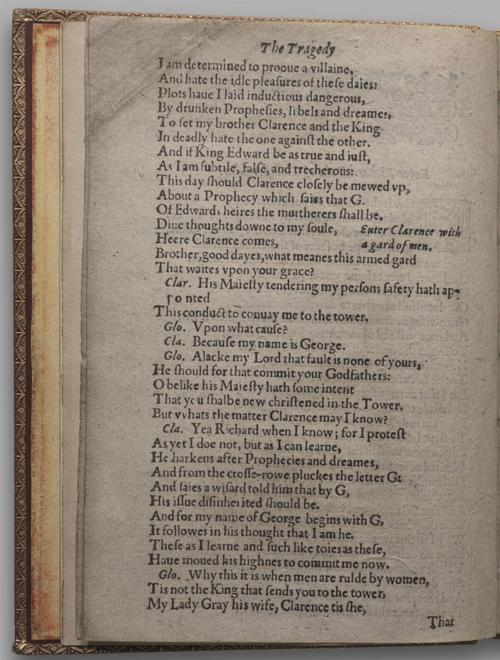 The Tragedy
I am determined to prooue a villaine,
And hate the idle pleaſures of theſe daies:
Plots haue I laid inductious dangerous,
By drunken Propheſies, libels and dreames,
To ſet my brother Clarence and the King
In deadly hate the one againſt the other.
And if King Edward be as true and iuſt,
As I am ſubtile, falſe, and trecherous:
This day ſhould Clarence cloſely be mewed vp,
About a Prophecy which ſaies that G.
Of Edwards heires the murtherers ſhall be.
Diue thoughts downe to my ſoule, Enter Clarence with
Heere Clarence comes, a gard of men.
Brother, good dayes, what meanes this armed gard
That waites vpon your grace?
Clar. His Maieſty tendering my perſons ſafety hath ap-
ro nted
This conduct to conuay me to the tower.
Glo. Vpon what cauſe?
Cla. Becauſe my name is George.
Glo. Alacke my Lord that fault is none of yours,
He ſhould for that commit your Godfathers:
O belike his Maieſty hath ſome intent
That you ſhalbe new chriſtened in the Tower.
But vvhats the matter Clarence may I know?
Cla. Yea Richard when I know; for I proteſt
As yet I doe not, but as I can learne,
He harkens after Prophecies and dreames,
And from the croſſe-rowe pluckes the letter G:
And ſaies a wiſard told him that by G,
His iſſue diſinherited ſhould be.
And for my name of George begins with G,
It followes in his thought that I am he.
Theſe as I learne and ſuch like toies as theſe,
Haue moued his highnes to commit me now.
Glo. Why this it is when men are rulde by women,
Tis not the King that ſends you to the tower,
My Lady Gray his wife, Clarence tis ſhe,
That